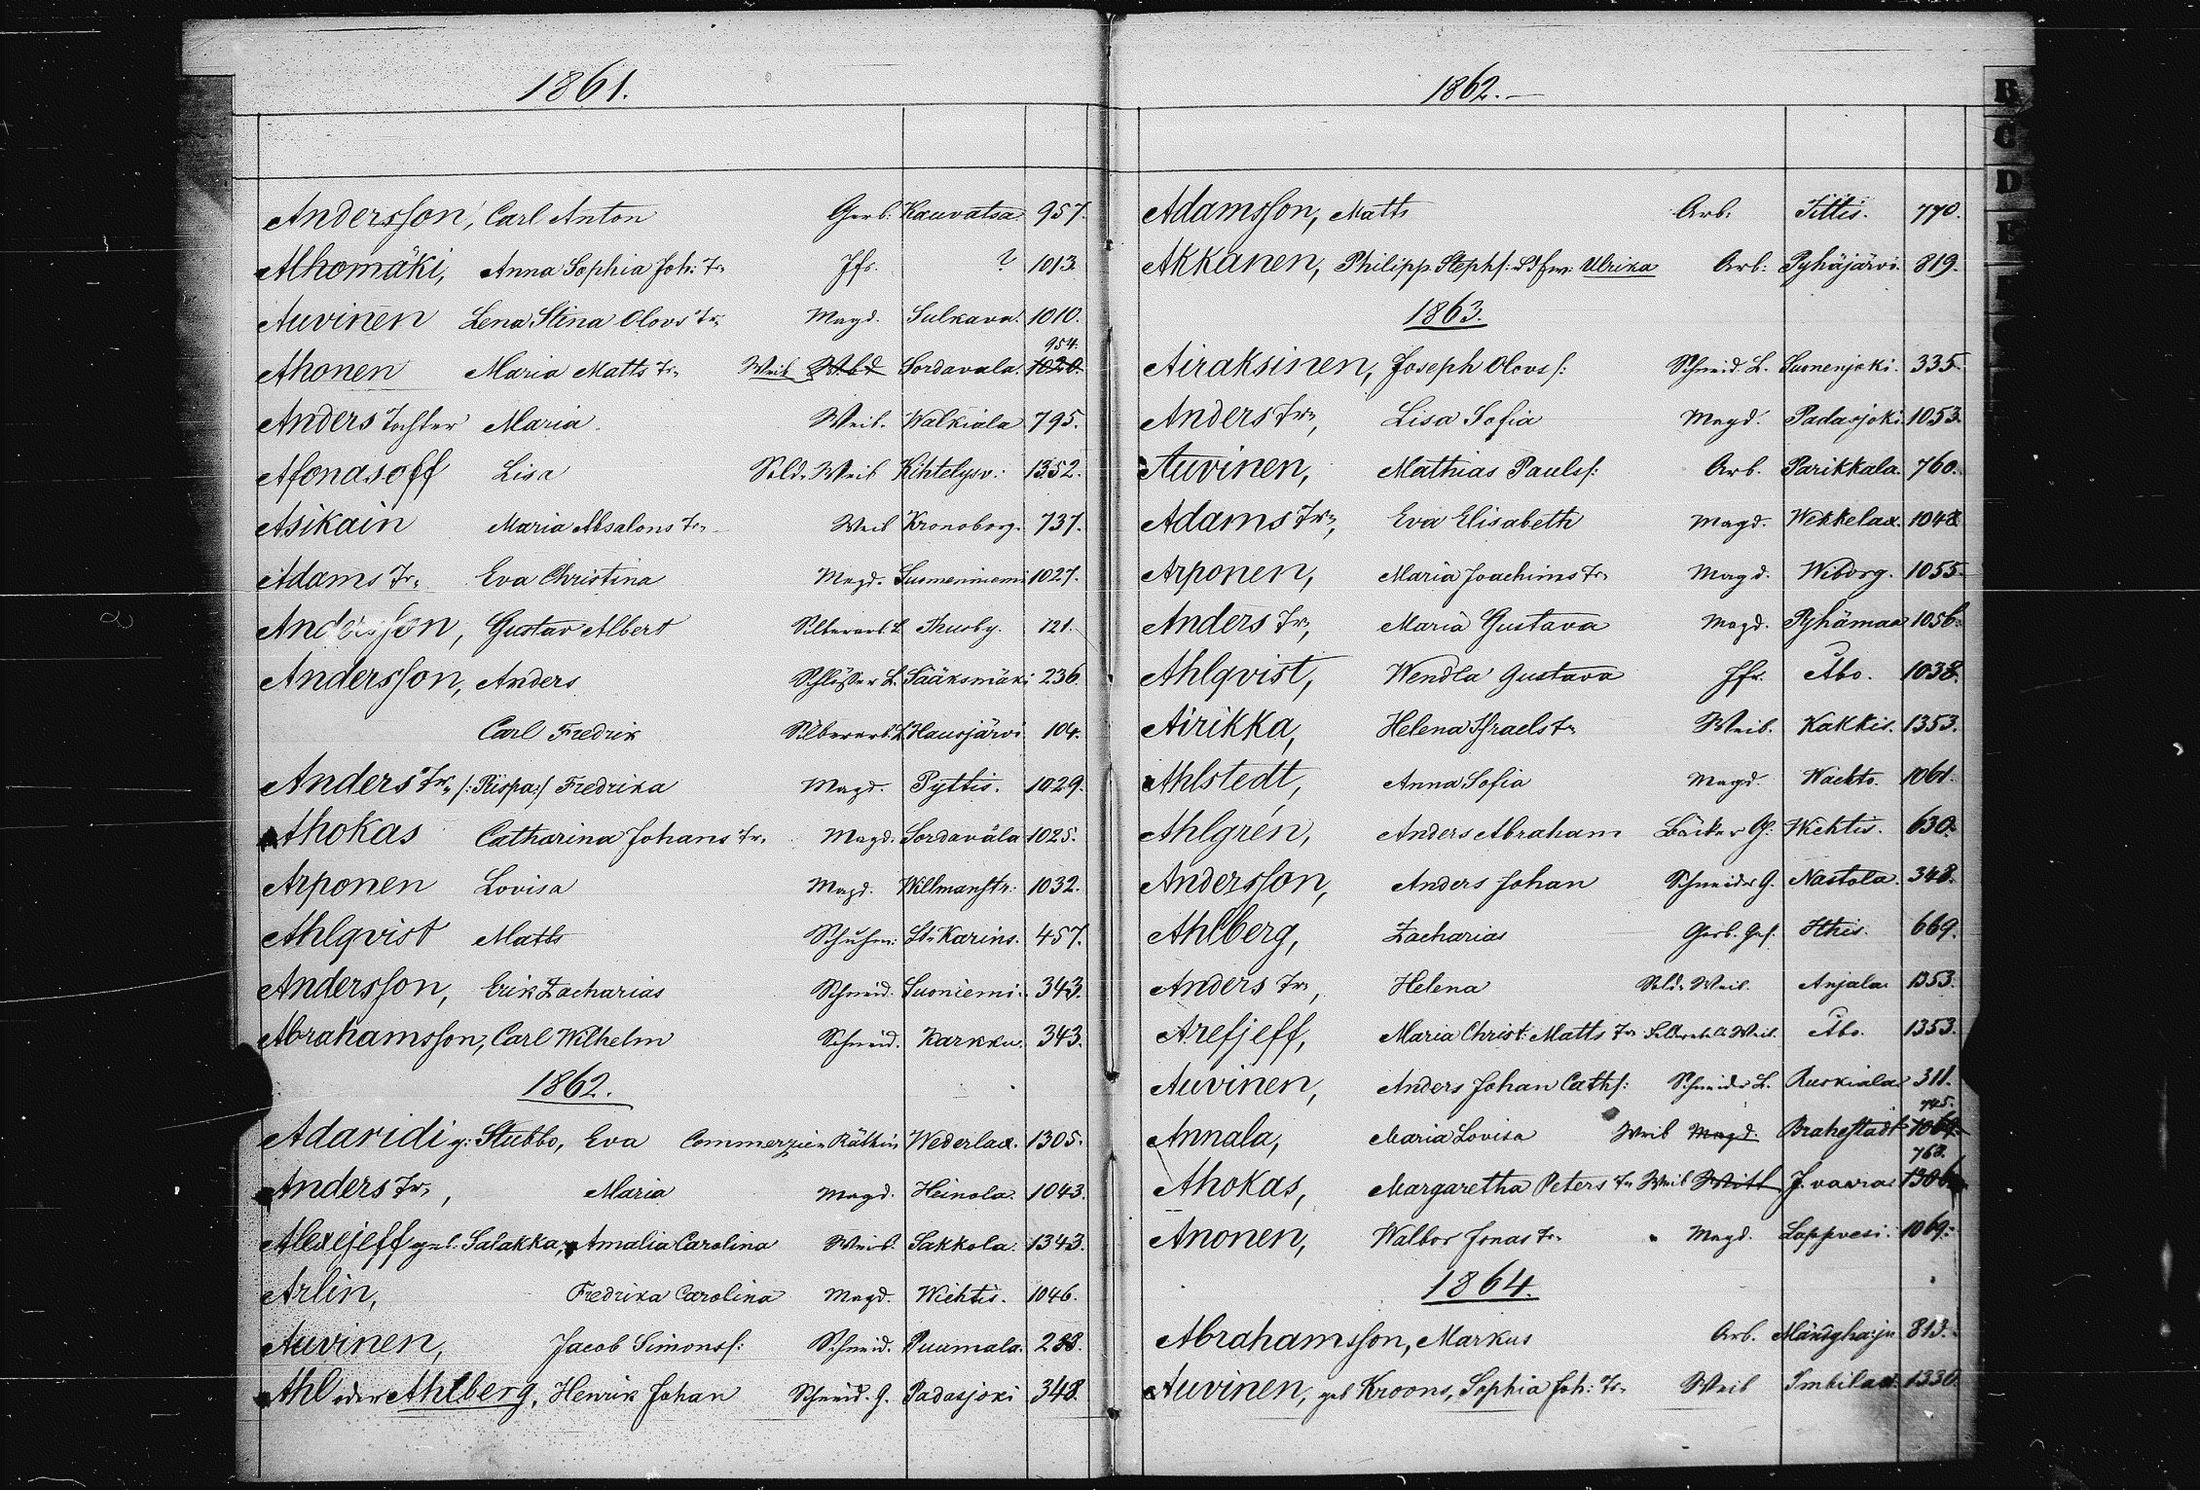 1861.
Andersson, Carl Anton Gerb: Kauvatsa 957.
Ahomäki, Anna Sophia Joh: Tr. Jfr. ? 1013.
Auvinen Lena Stina Olovs Tr. Magd. Sulkava. 1010.
954.
Ahonen Maria Matts Tr. Weib Sordavala. 1020.
Anders Tochter Maria. Weib. Walkiala 795.
Afonasoff Lisa Sold. Weib Kihtelysv: 1352.
Asikain Maria Absalons Tr. Weib Kronoborg. 737.
Adams Tr. Eva Christina Magd. Suomenniemi 1027.
Andersson, Gustav Albert Silberarb. L Thusby. 121.
Andersson, Anders Schlösser L. Sääksmäki 236
Carl Fredrik Silberarb. L Hausjärvi 104.
Anders Tr. /:Piispa:/ Fredrika Magd. Pyttis. 1029.
Ahokas Catharina Johans Tr. Magd. Sordavala 1025.
Arponen Lovisa Magd. Willmanstr: 1032.
Ahlqvist Matts Schuhm: St. Karins. 457.
Andersson, Erik Zacharias Schneid. Suoniemi. 343.
Abrahamsson, Carl Wilhelm Schneid. Karkku. 343.
1862.
Adaridi g: Stubbo, Eva Commerzien Räthin Wederlax. 1305.
Anders Tr., Maria Magd. Heinola. 1043.
Alexejeff geb. Salakka, Amalia Carolina Weib. Sakkola. 1343.
Arlin, Fredrika Carolina Magd. Wichtis. 1046.
Auvinen, Jacob Simonss: Schneid. Puumala. 288.
Ahl oder Ahlberg, Henrik Johan Schneid. G. Padasjoki 348.
1862.—
Adamsson, Matts Arb. Tittis. 770.
Akkanen, Philipp Stephs: Ulrika Arb: Pyhäjärvi. 819.
1863.
Airaksinen, Joseph Olovs: Schneid. L. Suonenjoki. 335.
Anders Tr., Lisa Sofia Magd. Padasjoki. 1053.
Auvinen, Mathias Pauls: Arb. Parikkala. 760.
Adams Tr., Eva Elisabeth Magd. Wekkelax. 1048
Arponen, Maria Joachims Tr. Magd. Wiborg. 1055.
Anders Tr., Maria Gustava Magd. Pyhämaa 1056.
Ahlqvist, Wendla Gustava Jfr. Åbo. 1038.
Airikka, Helena Israels Tr. Weib. Kakkis. 1353.
Ahlstedt, Anna Sofia Magd. Wichtis. 1061.
Ahlgrén, Anders Abraham Bäcker G: Wichtis. 630.
Andersson, Anders Johan Schneider G. Nastola. 348.
Ahlberg, Zacharias Gerb. Ges. Ithis. 669.
Anders Tr., Helena Sold. Weib. Anjala. 1353.
Arefjeff, Maria Christ: Matts Tr. Feldwebels Weib. Åbo. 1353.
Auvinen, Anders Johan Caths: Schneider L. Ruskiala 311.
745.
Annala, Maria Lovisa Weib Magd. Brahestadt 1069.
768.
Ahokas, Margaretha Peters Tr. Weib J. vaaras 1306.
Anonen, Walbor Jonas Tr. Magd. Lappvesi. 1069.
1864.
Abrahamsson, Markus Arb. Mändyharju 813.
Auvinen, geb Kroons, Sophia Joh: Tr. Weib Imbilax. 1330.
B
C
D
E